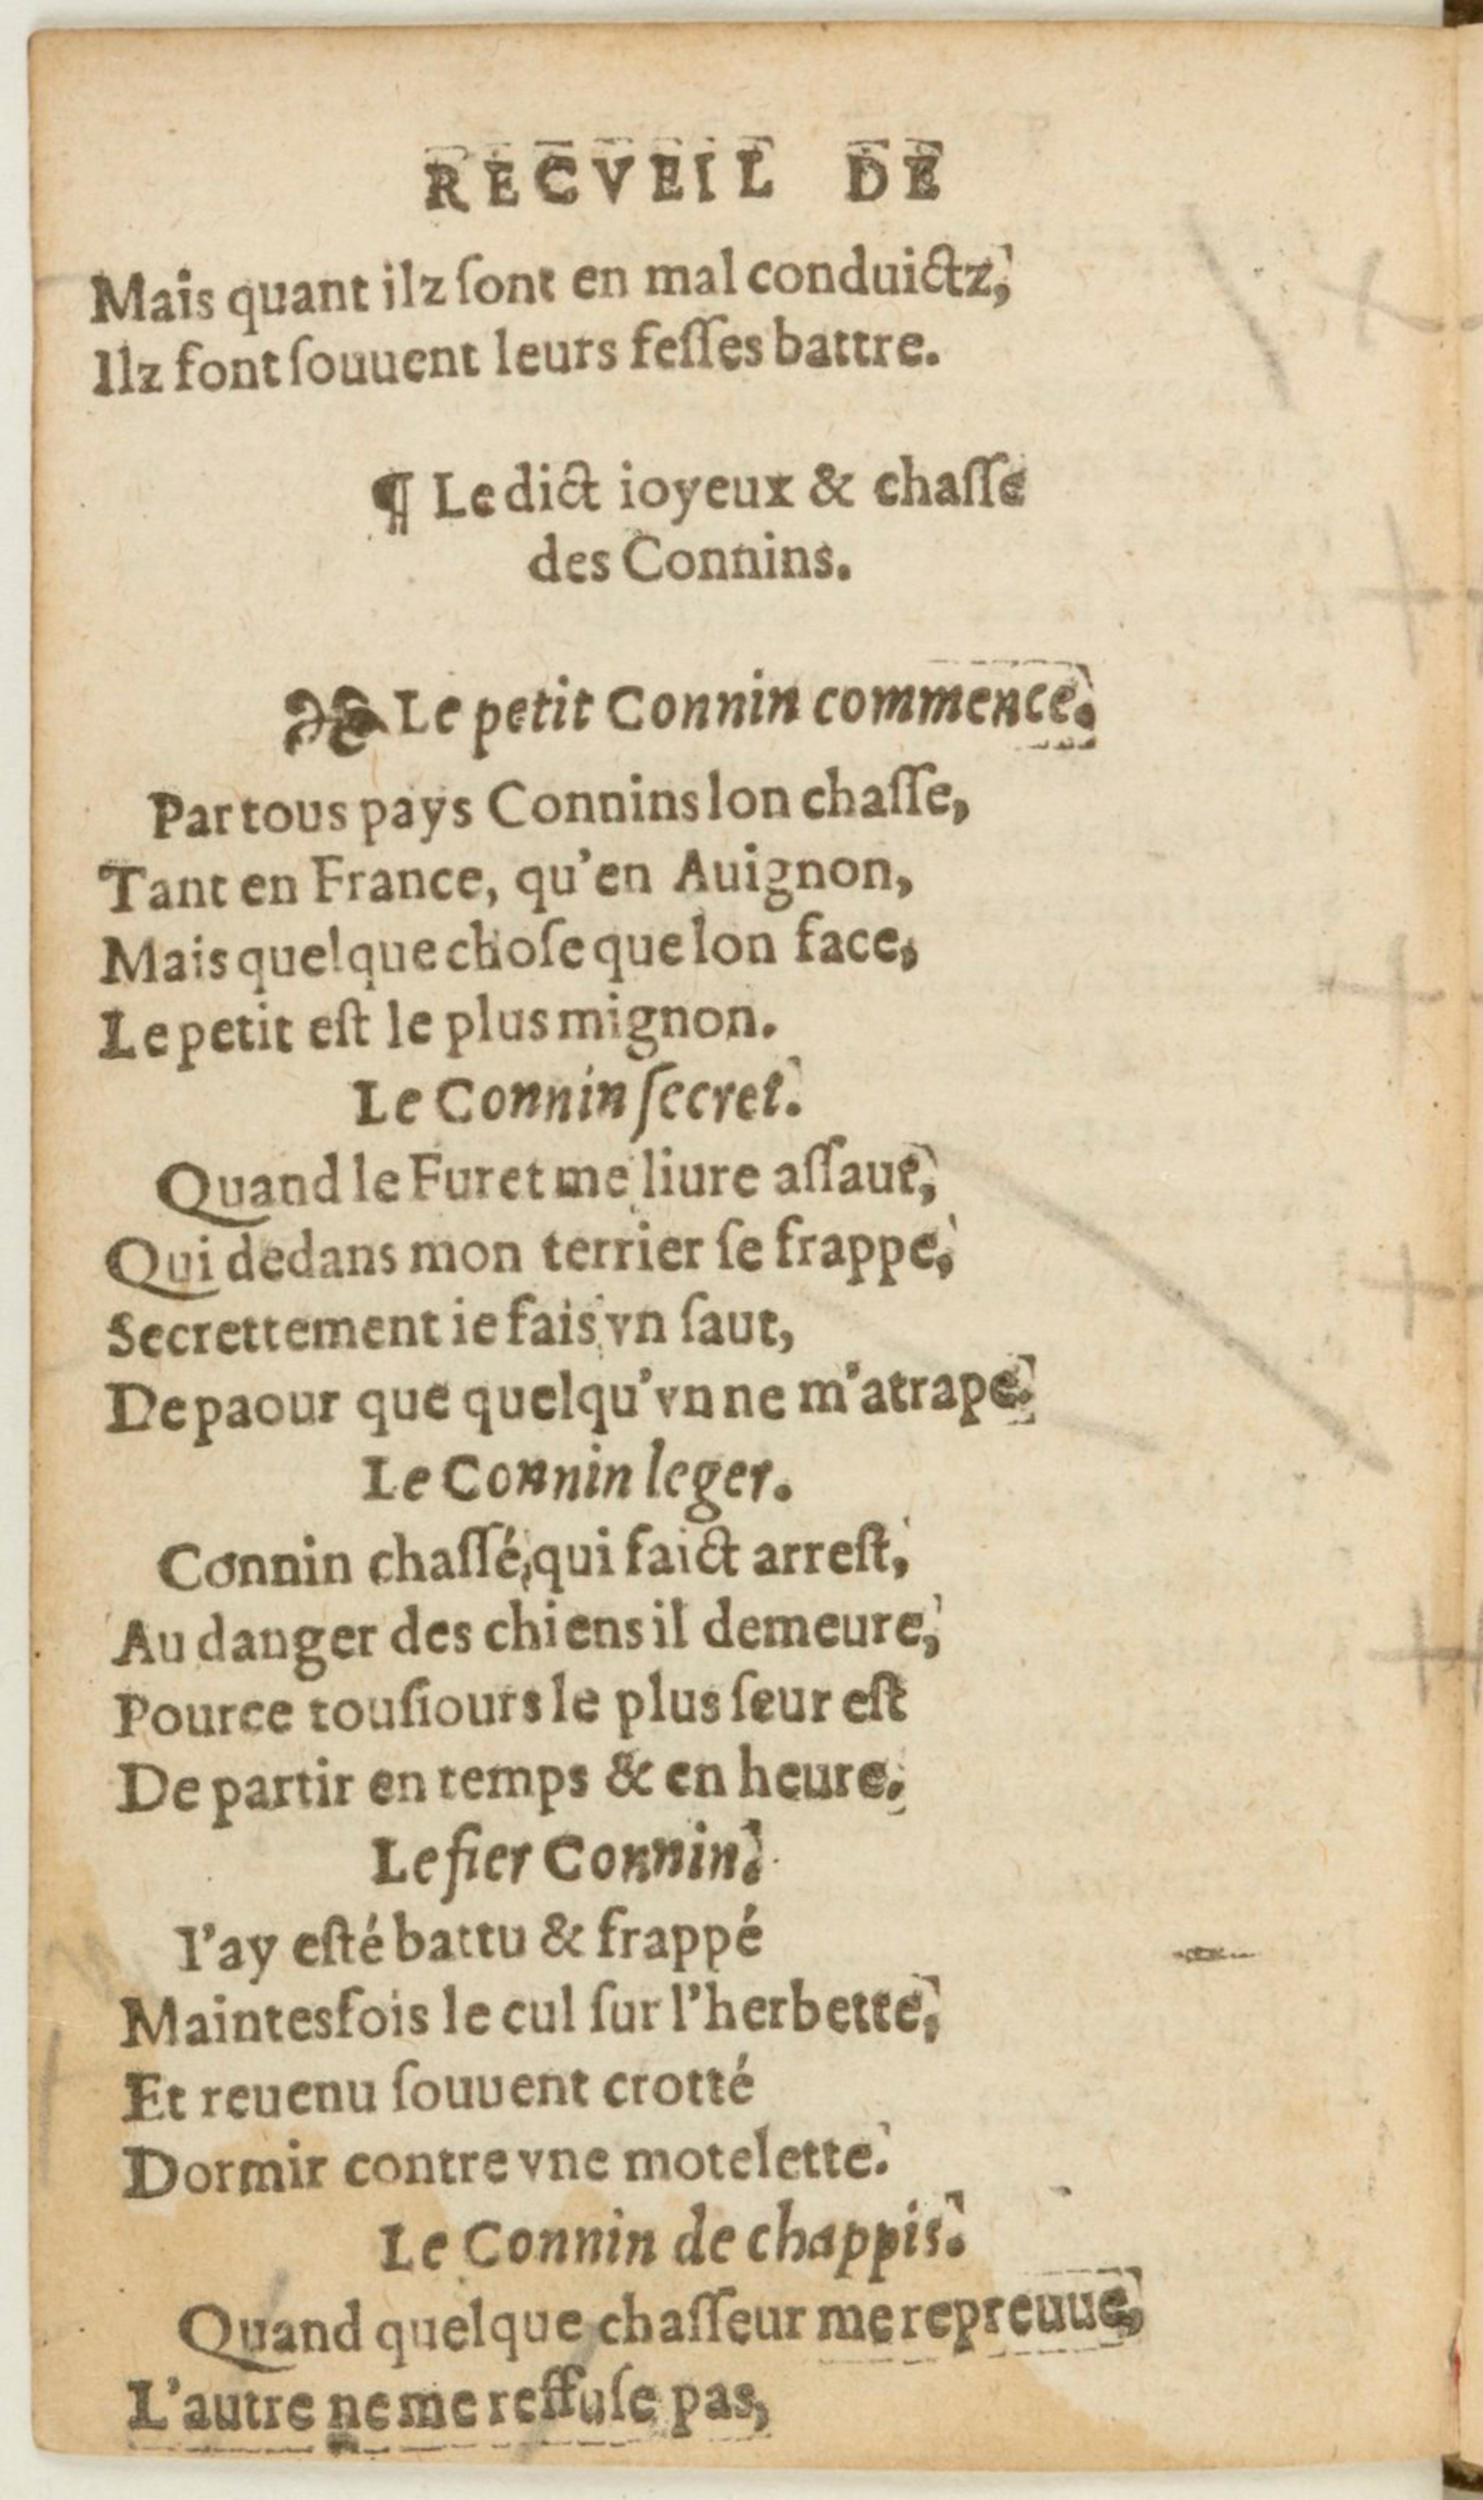 RECVEIL DE
Mais quant ilz ſont en mal conduictz,
Ilz font ſouuent leurs feſſes battre.
¶ Le dict ioyeux & chaſſe
des Connins.
Le petit Connin commence.
Par tous pays Connins lon chaſſe,
Tant en France, qu'en Auignon,
Mais quelque choſe que lon face,
Le petit eſt le plus mignon.
Le Connin ſecret.
Quand le Furet me liure aſſaut,
Qui dedans mon terrier ſe frappe,
Secrettement ie fais vn ſaut,
De paour que quelqu'vn ne m'atrape.
Le Connin leger.
Connin chaſſé, qui faict arreſt,
Au danger des chiens il demeure,
Pource touſiours le plus ſeur eſt
De partir en temps & en heure.
Le fier Connin.
I'ay eſté battu & frappé
Maintesfois le cul ſur l'herbette,
Et reuenu ſouuent crotté
Dormir contre vne motelette.
Le Connin de chappis.
Quand quelque chaſſeur me repreuue,
L'autre ne me reffuſe pas,